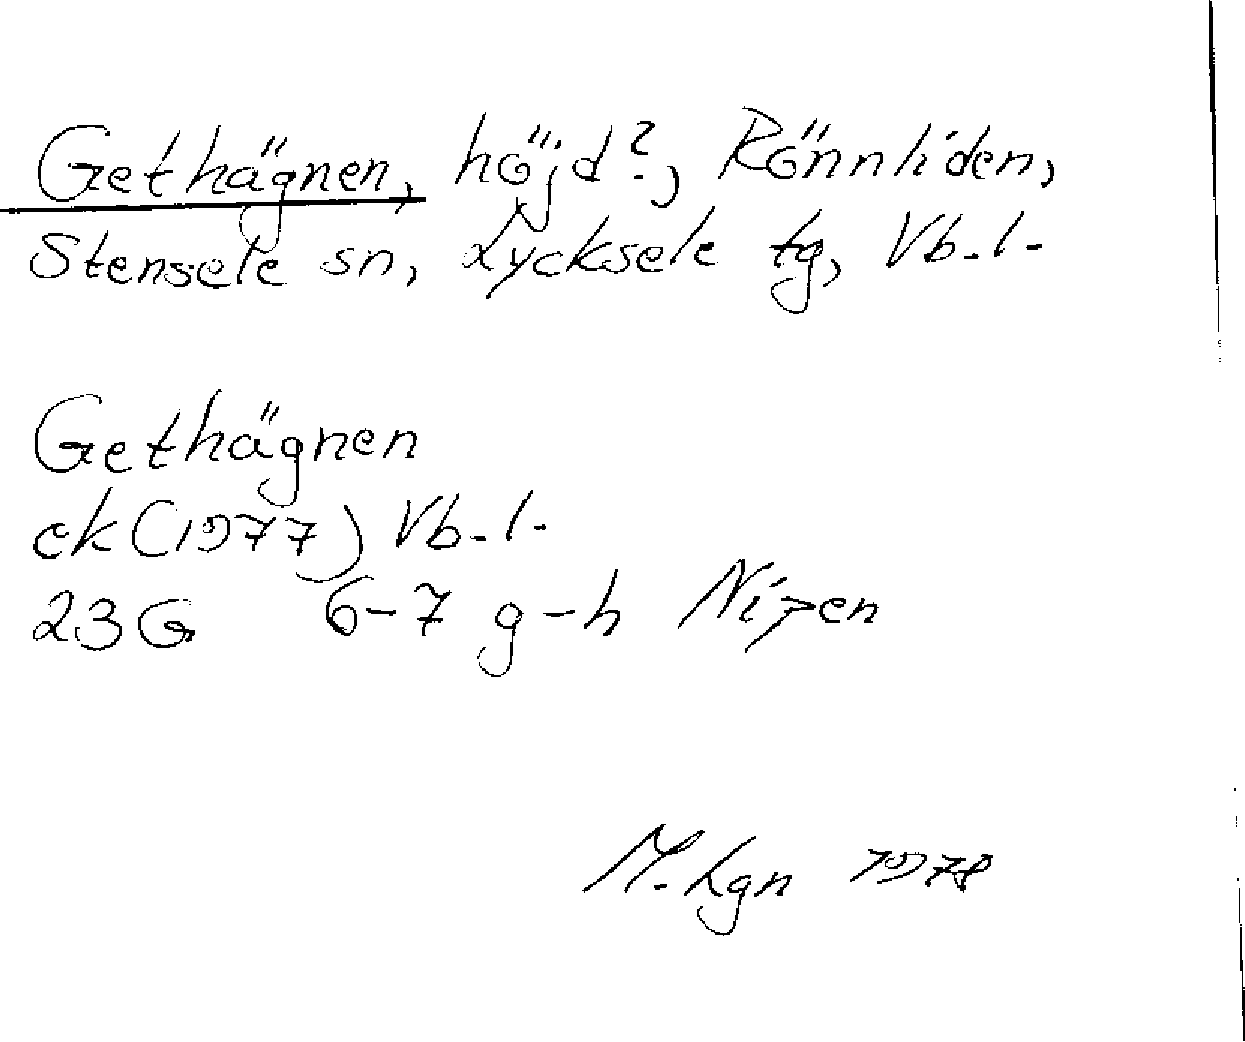 Gethägnen, höjd?, Rönnliden,
Stensele sn, Lycksele tg, Vb.l.
Gethägnen
ek (1977) Vb.l.
23G 6-7 g-h Nipen
M.Lgn 1978